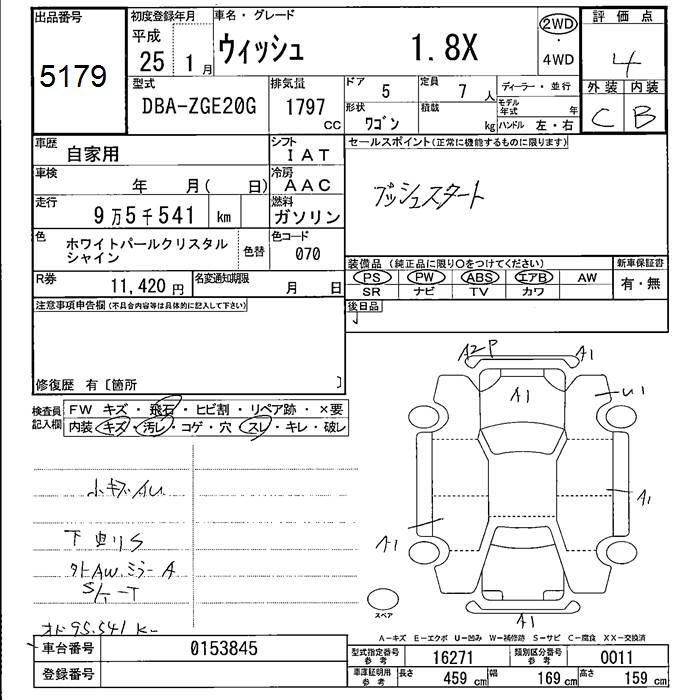 出品番号
5179
初度登録年月
平成
25 1月
車名・グレード
ウィッシュ 1.8X
2WD
・
4WD
評価点
4
外装 内装
C B
型式
DBA-ZGE20G
排気量
1797
cc
ドア
5
定員
7 人
ディーラー・並行
形状
ワゴン
積載
kg
モデル年式 年
ハンドル 左・右
車歴
自家用
シフト
IAT
セールスポイント(正常に機能するものに限ります)
プッシュスタート
車検
年 月( 日)
冷房
AAC
走行
9万5千541 km
燃料
ガソリン
色
ホワイトパールクリスタル
シャイン
色替
色コード
070
装備品 (純正品に限り○をつけてください)
新車保証書
PS PW ABS エアB AW
SR ナビ TV カワ
有・無
R券
11,420 円
名変通知期限
月 日
後日品
注意事項申告欄(不具合内容等は具体的に記入して下さい)
修復歴 有〔箇所 〕
検査員
記入欄
FW キズ・飛石・ヒビ割・リペア跡・×要
内装 キズ・汚レ・コゲ・穴・スレ・キレ・破レ
小キズ AU
下 S
外AW.ミラーA
S/T-T
オド95.541 K-
A2P
A1
A1
U1
A1
A1
A1
スペア
A-キズ E-エクボ U-凹み W-補修跡 S-サビ C-腐食 XX-交換済
車台番号
0153845
登録番号
型式指定番号
参考
16271
類別区分番号
参考
0011
車庫証明用
参考
長さ
459 cm
幅
169 cm
高さ
159 cm